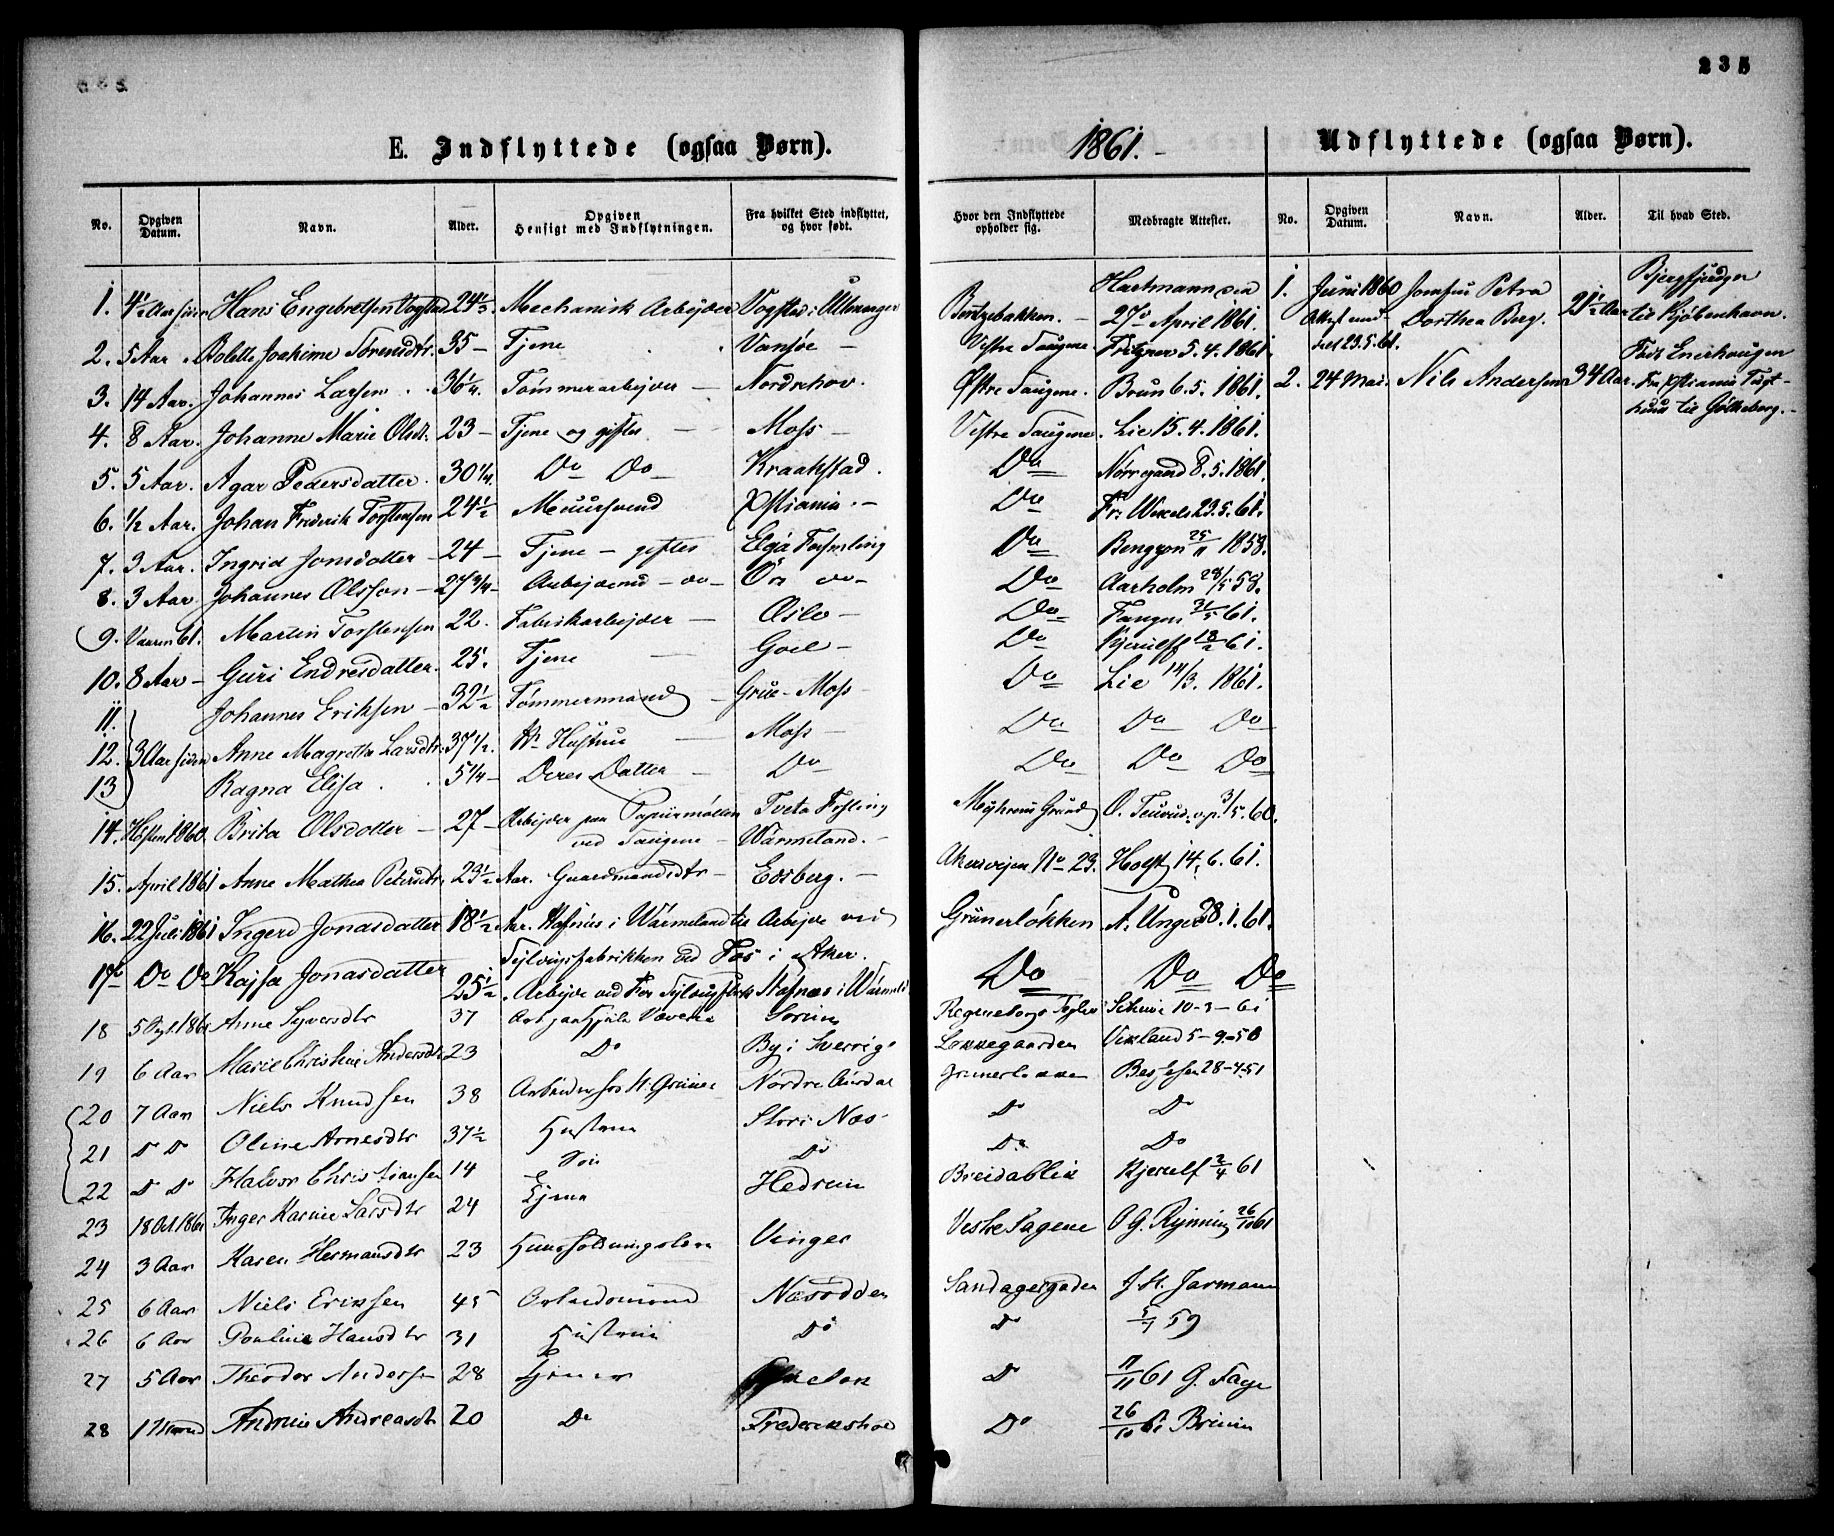 235
E. Indflyttede (ogsaa Børn).
1861.
Udflyttede (ogsaa Børn).
No. Opgiven Datum. Navn. Alder. Opgiven Hensigt med Indflytningen. Fra hvilket Sted indflyttet, og hvor født. Hvor den Indflyttede opholder sig. Medbragte Attester. No. Opgiven Datum. Navn. Alder. Til hvad Sted.
1. 4½ Aar siden Hans Engebretsen Vogstad 24½ Mechanisk Arbejder Vogstad i Ullensager Bentsebakken. Hartmann 27 April 1861.
2. 5 Aar Bolette Joachime Sørensdtr. 35 Tjene Vansøe Vestre Saugene. Fritzner 5.4.1861.
3. 14 Aar. Johannes Larsen 36¼ Tømmerarbejder Nordrehov. Østre Saugene. Brun 6.5.1861.
4. 8 Aar. Johanne Marie Olsdt. 23 Tjene og giftes Moss Vestre Saugene. Lie 15.4.1861.
5. 5 Aar. Agar Pedersdatter. 30¼ Do Do Kraakstad. Do Nørregaard 8.5.1861.
6. ½ Aar. Johan Fréderik Torstensen 24½ Muursvend Xstiania. Do Fr. Wexels 29.5.61.
7. 3 Aar. Ingrid Jonsdatter 24 Tjene - giftes Elgå Do 25/11 1858.
8. 3 Aar Johannes Olsson 27¾ Do Aarholm 28/5 58.
9. Vaaren 61. Martin Torstensen 22. Fabrikarbejder Oslo Do Fangen 31/5 61.
10. 8 Aar Guri Endresdatter. 25. Tjene Goel Do Kjerulf 18/2 61.
11. Johannes Eriksen 32½ Tømmermand Grue - Moss Do Lie 14/3. 1861.
12. 3 Aar siden Anne Magrethe Larsdtr. 37½. Hs Hustrue Moss Do Do Do
13 Ragna Elisa. 5¼ Deres Datter Do Do Do Do
14. Høsten 1860. Brita Olsdotter 27 Arbejder paa Papirmøllen ved Saugene Tveta Wärmeland. Myhrens Grund O. 3/5.60.
15. April 1861 Anne Mathea Petersdtr. 23½ Aar. Gaardmandsdtr Edsberg. Akersvejen No 23. Holst 14.6.61.
16. 22 Juli 1861 Ingerd Jonasdatter 18½ Aar. i Wärmeland til Arbejde ved Sejldugsfabrikken ved Fos i Aker. Grünerløkken A. Unger 28.1.61.
17 Do Do Kajsa Jonasdatter 25½ Arbejde ved Fos i Wärmel. Do Do Do
18 5 1861 Anne Syversdtr 37 Sørum 10-3-61
19 6 Aar Marie Christine Andersdtr 23 Do By i Sverrig Løkkegaarden Vikland 5-9-58
20 7 Aar Niels Knudsen 38 Arbeider hos H. Grüner Nordre Aurdal Grünerløkken 28-4-51
21 D D Oline Arnesdtr 37½ Hustru Store Næs Do Do
22 D D Halvor Christiansen 14 Søn Do Do Do
23 18 Oct 1861 Inger Karine Larsdtr 24 Tjene Hedrum Breidablik Kjerulf 2/4 61
24 3 Aar Karen Hermansdtr 23 Vinger Vestre Sagene O G. Rynning 26/10 61
25 6 Aar Niels Eriksen 45 Arbeidsmand Næsodden Sandagergaden J. H. Jarmann
26 6 Aar Pauline Hansdtr 31 Hustrue Do D 5/7 59
27 5 Aar Theodor Andersen 28 Tjener D 11/11 61 G. Faye
28 1 Maaned Andrine Andreasdtr 20 Do Frederikshald Do 26/10 61 Bruun
1. Juni 1860 Josefine Petra Dorthea Berg. 21½ Aar Bjergfjerdgen til Kjøbenhavn.
2. 24 Mai. Nils Andersen 34 Aar. Fra Enerhaugen Fra Xstiania Tugthuus til Gøtheborg.